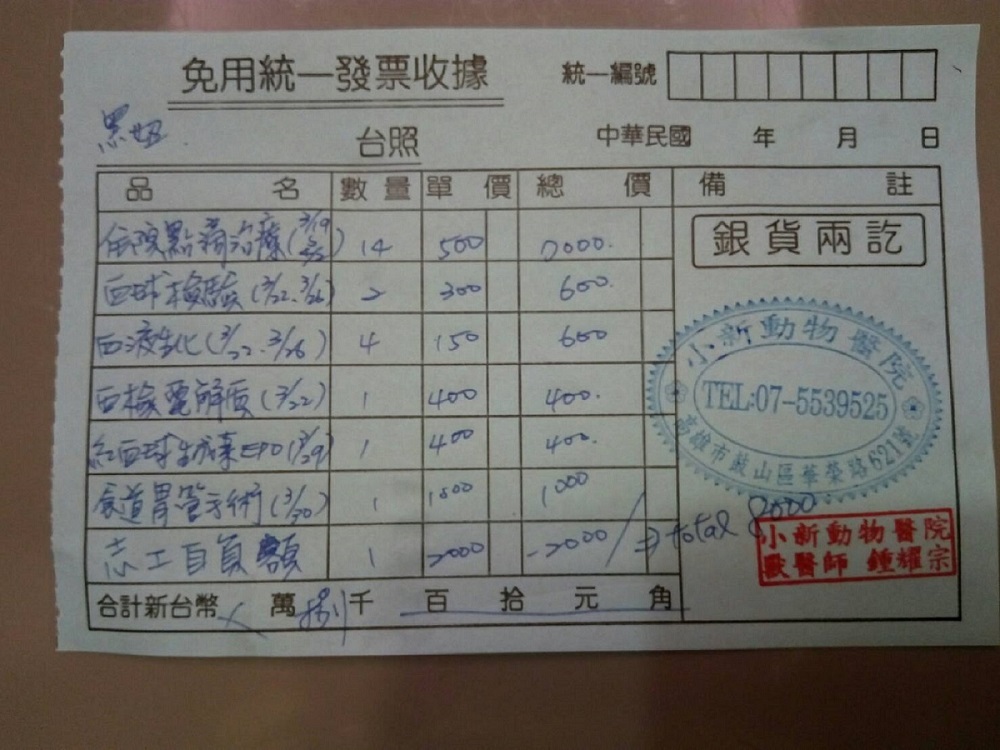 免用統一發票收據 統一編號
黑妞 台照 中華民國 年 月 日
品名 數量 單價 總價 備註
住院點滴治療(3/19 ) 14 500 7000.
血球檢驗(3/22、3/26) 2 300 600.
血液生化(3/22、3/26) 4 150 600
血檢電解質(3/22) 1 400 400.
紅血球生成素EPO(3/29) 1 400 400.
食道胃管手術(3/30) 1 1000 1000
志工自負額 1 2000 -2000 / ⇒ total 8000
合計新台幣 萬捌千 百 拾 元 角
銀貨兩訖
小新動物醫院
TEL:07-5539525
高雄市鼓山區華榮路621號
小新動物醫院
獸醫師 鍾耀宗